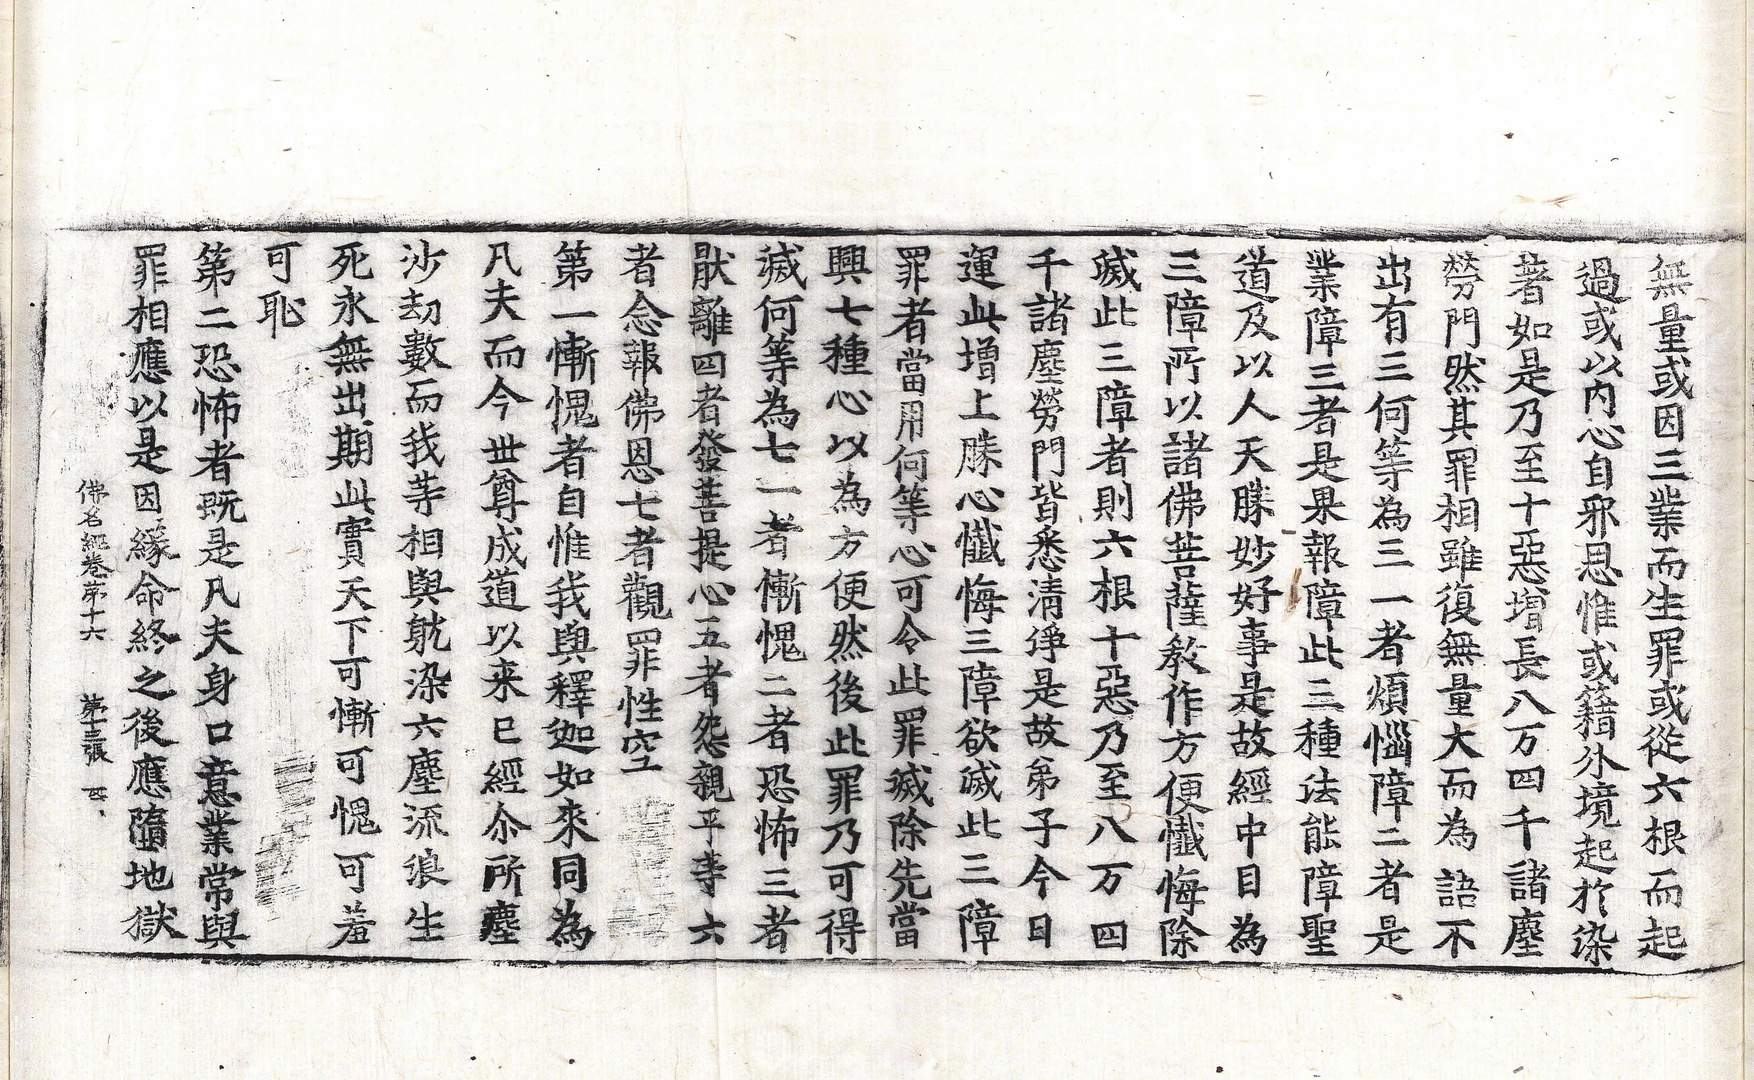 無量或因三業而生罪或從六根而起
過或以内心自邪思惟或籍外境起於染
著如是乃至十惡增長八万四千諸塵
勞門然其罪相雖復無量大而為語不
出有三何等為三一者煩惱障二者是
業障三者是果報障此三種法能障聖
道及以人天勝妙好事是故經中目為
三障所以諸佛菩薩教作方便懺悔除
滅此三障者則六根十惡乃至八万四
千諸塵勞門皆悉清淨是故弟子今日
運此增上勝心懺悔三障欲滅此三障
罪者當用何等心可令此罪滅除先當
興七種心以為方便然後此罪乃可得
滅何等為七一者慚愧二者恐怖三者
猒離四者發菩提心五者怨親平等六
者念報佛恩七者觀罪性空
第一慚愧者自惟我與釋迦如來同為
凡夫而今世尊成道以来已經尒所塵
沙劫數而我等相與躭染六塵流浪生
死永無出期此實天下可慚可愧可羞
可恥
第二恐怖者既是凡夫身口意業常與
罪相應以是因緣命終之後應墮地獄
佛名經卷第十六 第十三張 四